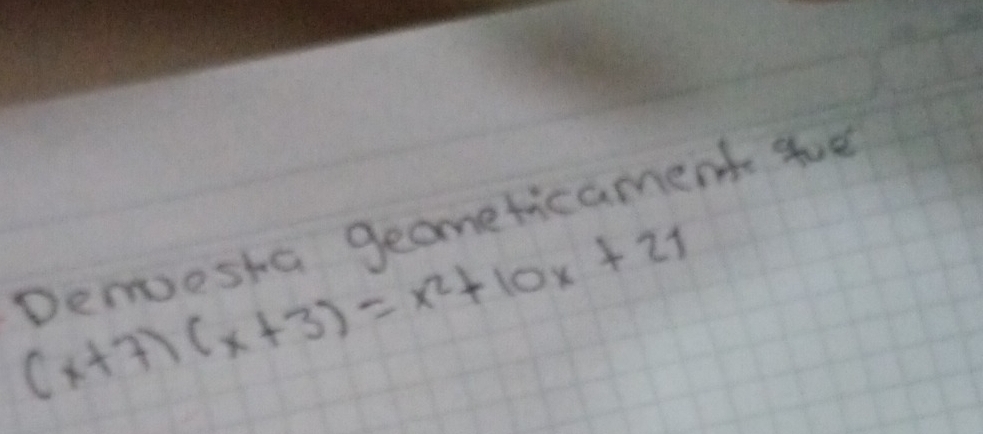 Demuestra geometricamente que
(x+7)(x+3) = x²+10x + 21